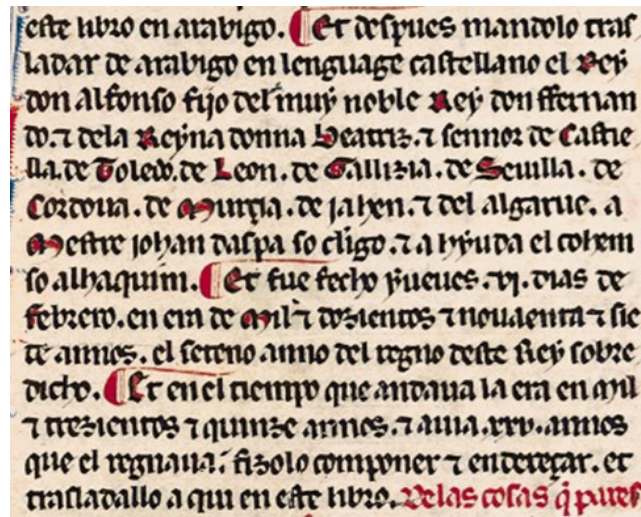 este libro en arabigo. Et despues mandolo tras
ladar de arabigo en lenguage castellano el Rey
don Alfonso fijo del muy noble Rey don ffernan
do. ⁊ dela Reyna donna Beatriz. ⁊ sennor de Castie
lla. de Toledo. de Leon. de Gallizia. de Seuilla. de
Cordoua. de Murçia. de jahen. ⁊ del algarue. a
Mestre johan daspa so cligo. ⁊ a hyuda el cohem
so alhaquim. Et fue fecho yueues. vj. dias de
febrero. en era de Mil ⁊ dozientos ⁊ nouaenta ⁊ sie
te annos. el seteno anno del regno deste Rey sobre
dicho. Et en el tiempo que andaua la era en Mil
⁊ trezientos ⁊ quinze annos. ⁊ auia. xxv. annos
que el regnaua. fizolo componer ⁊ endereçar. et
trasladallo a qui en este libro. Delas cosas q̃ pares